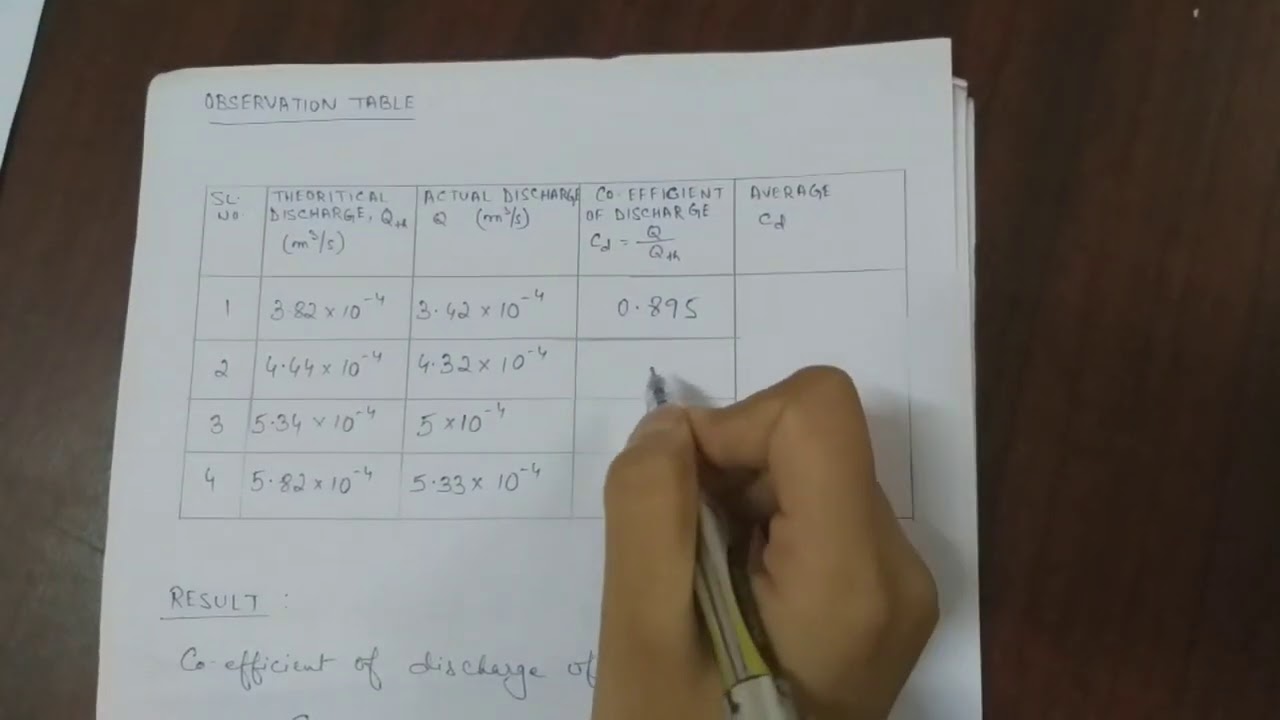 OBSERVATION TABLE
SL. NO. THEORITICAL DISCHARGE, Qth (m³/s) ACTUAL DISCHARGE Q (m³/s) CO-EFFICIENT OF DISCHARGE Cd = Q/Qth AVERAGE Cd
1 3.82 × 10⁻⁴ 3.42 × 10⁻⁴ 0.895
2 4.44 × 10⁻⁴ 4.32 × 10⁻⁴
3 5.34 × 10⁻⁴ 5 × 10⁻⁴
4 5.82 × 10⁻⁴ 5.33 × 10⁻⁴
RESULT :
Co-efficient of discharge of